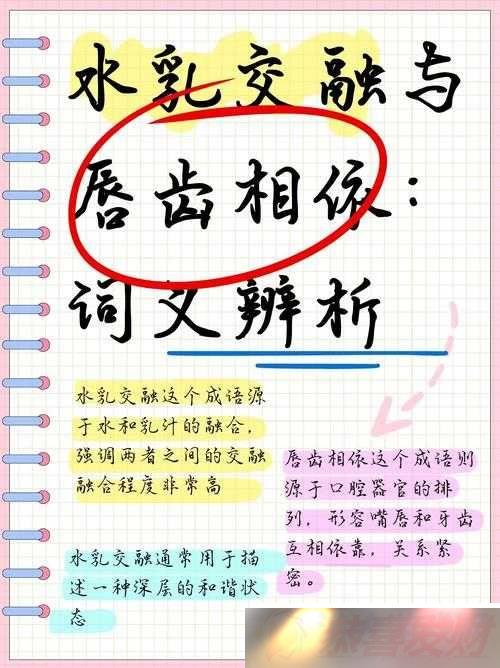 水乳交融与
唇齿相依：
词义辨析
水乳交融这个成语源
于水和乳汁的融合，
强调两者之间的交融
融合程度非常高
唇齿相依这个成语则
源于口腔器官的排
列，形容嘴唇和牙齿
互相依靠，关系紧
密。
水乳交融通常用于描
述一种深层的和谐状
态